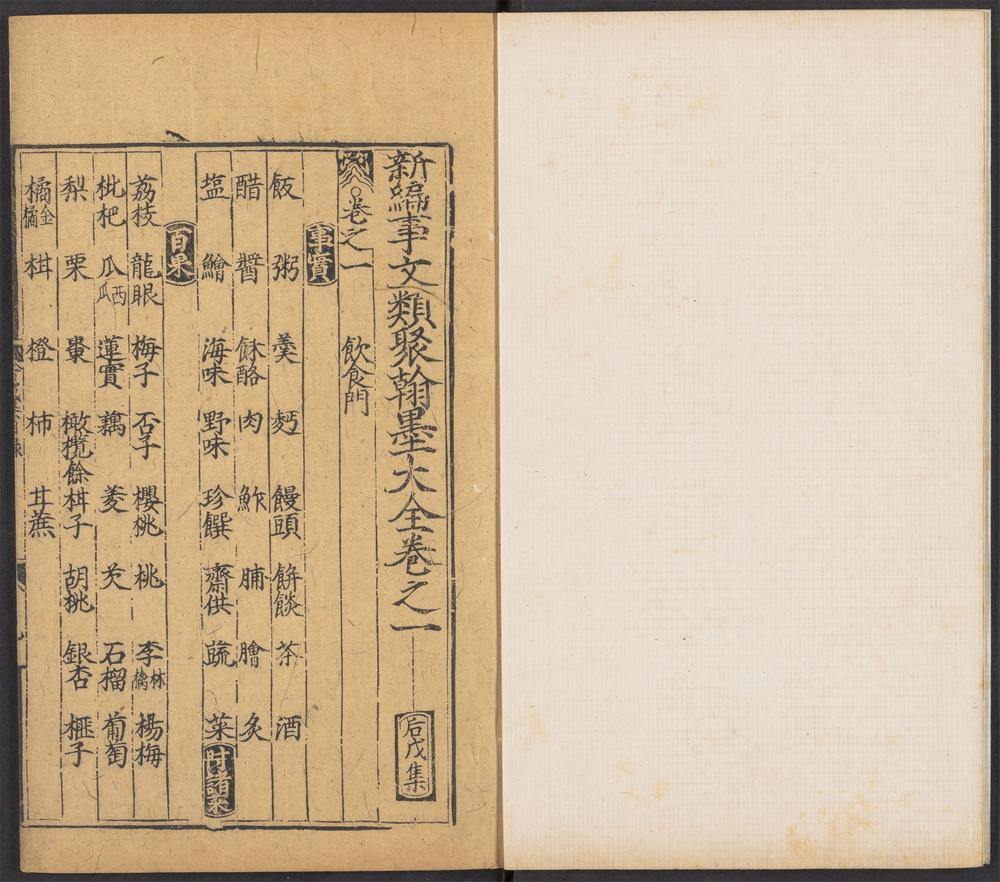 新編事文類聚翰墨大全卷之一 后戊集
卷之一 飲食門
事實
飯 粥 羮 麪 饅頭 餅餤 茶 酒
醋 醬 酥酪 肉 鮓 脯 膾 炙
塩 鱠 海味 野味 珍饌 齋供 蔬 菜 附諸米
百果
荔枝 龍眼 梅子 杏子 櫻桃 桃 李 林檎 楊梅
枇杷 瓜 西瓜 蓮實 藕 菱 芡 石榴 葡萄
梨 栗 棗 橄欖 餘柑子 胡桃 銀杏 榧子
橘 金橘 柑 橙 柿 甘蔗